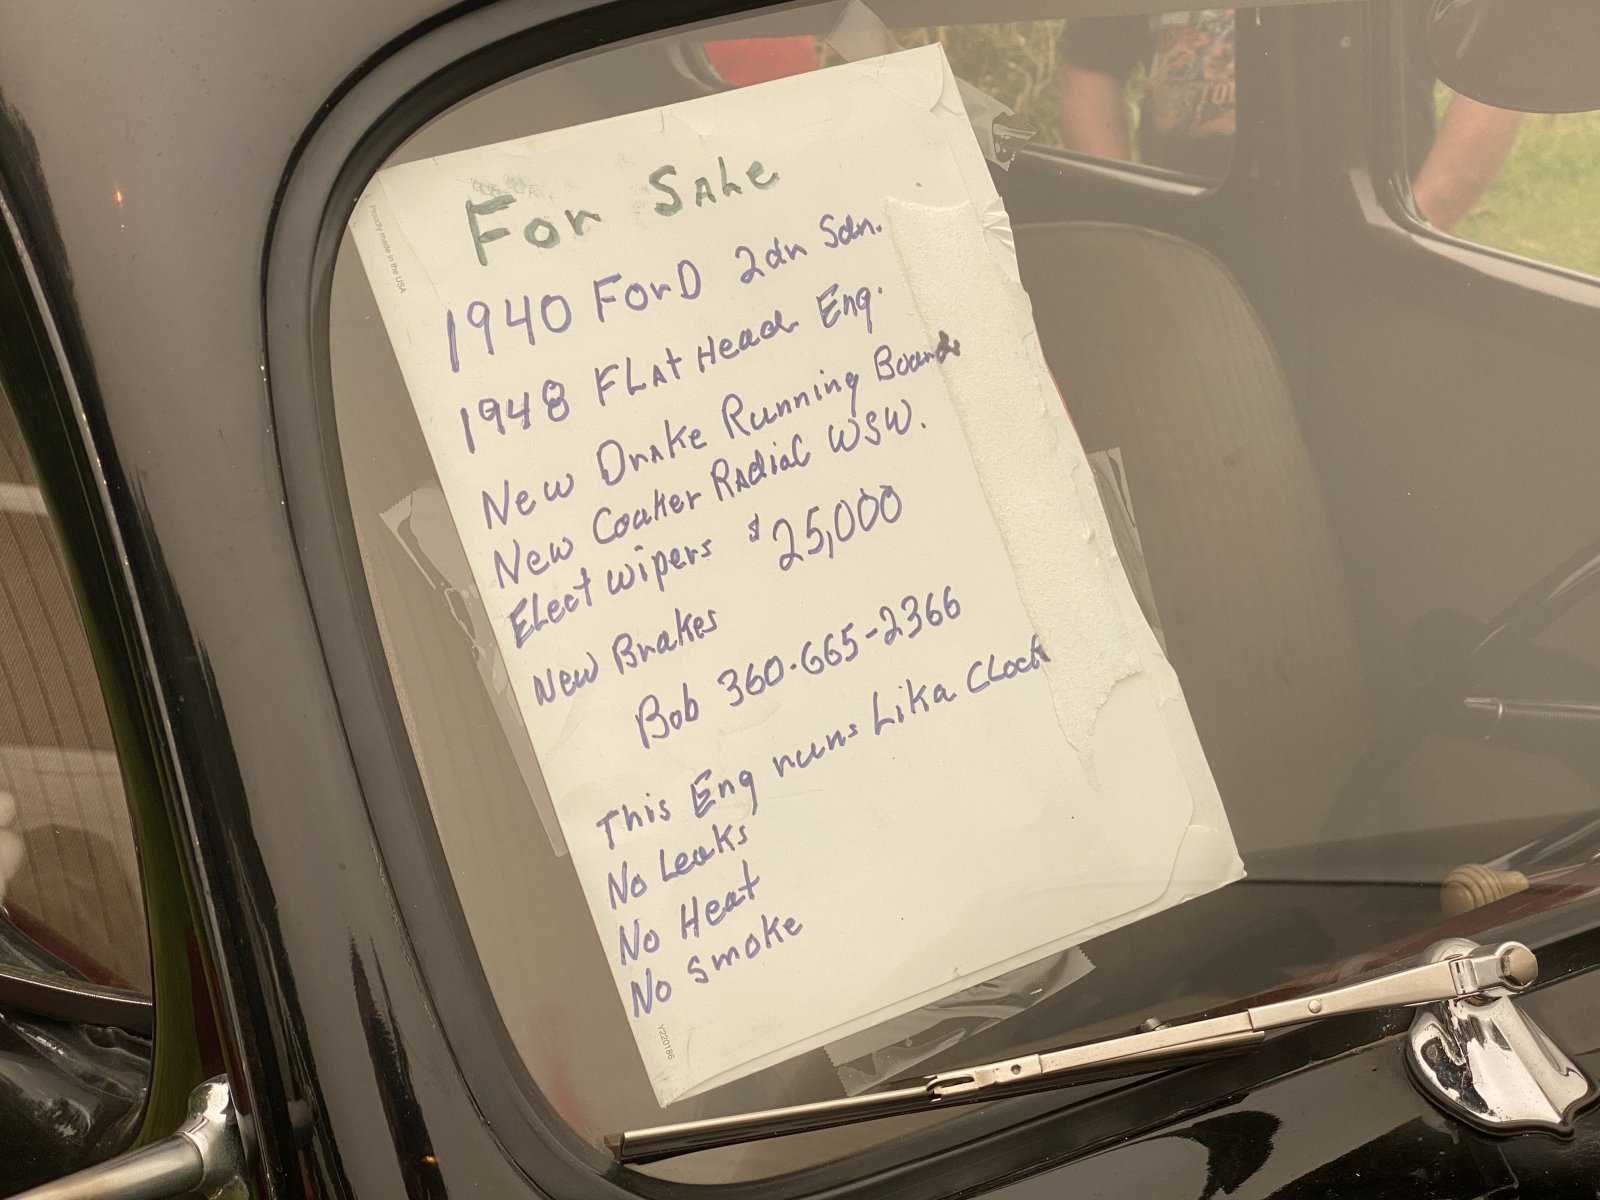 For Sale
1940 Ford 2dr Sdn.
1948 Flat Head Eng.
New Drake Running Boards
New Coaker Radial WSW.
Elect wipers $25,000
New Brakes
Bob 360-665-2366
This Eng runs Lika Clock
No Leaks
No Heat
No smoke
Proudly made in the USA
Y220186